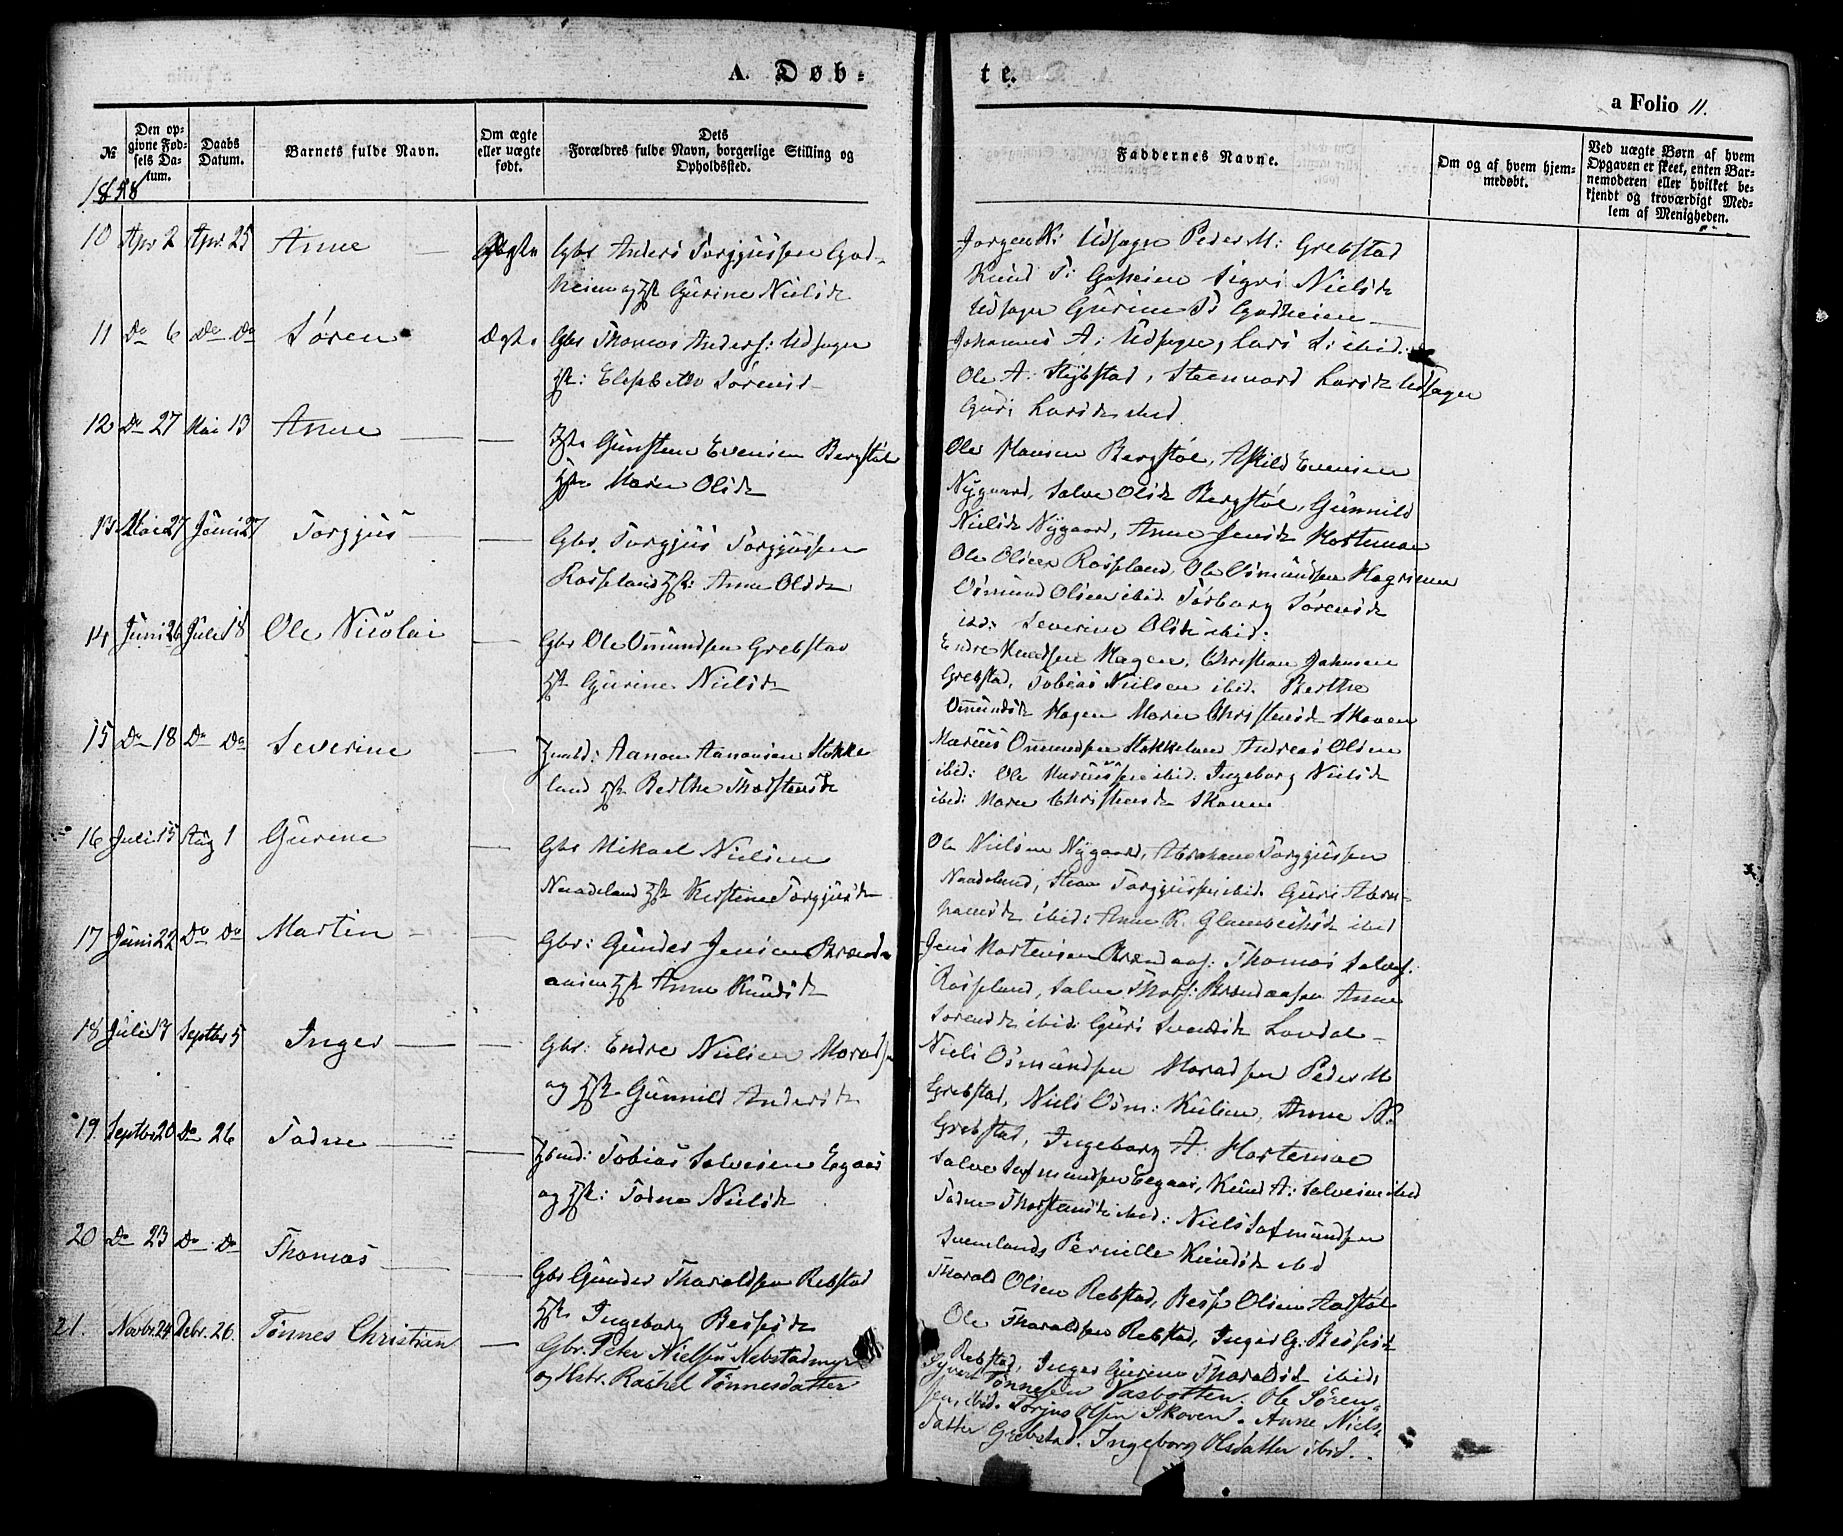 A. Døb-
te.
a Folio 11.
№
Den op-
givne Fød-
sels Da-
tum.
Daabs
Datum.
Barnets fulde Navn.
Om ægte
eller uægte
født.
Dets
Forældres fulde Navn, borgerlige Stilling og
Opholdssted.
Faddernes Navne.
Om og af hvem hjem-
medøbt.
Ved uægte Børn af hvem
Opgaven er skeet, enten Bar-
nemoderen eller hvilket be-
kjendt og troværdigt Med-
lem af Menigheden.
1858
10 Apr 2 Apr. 25 Anne — Ægte Gbr Anders Torgjussen God-
heien og Hst Gurine Nielsdr
Jørgen N: Udsagn Peder M: Grebstad
Knud T: Godheien Sigri Nielsdr
Udsagn Gurine T: Godheien
11 Do 6 Do Do Søren Ægte Gbr Thomas Anders: Udsagn
Hst: Elisabeth Sørensd
Johannes A: Udsagn, Lars L: ibid.
Ole A: Stybstad, Steenvard Larsdr Udsagn
Guri Larsdr ibid
12 Do 27 Mai 13 Anne — — Gunsten Evensen Bergstøl
Hst: Maren Olsdr
Ole Hansen Bergstøl, Askild Evensen
Nygaard, Salve Olsdr Bergstøl, Gunnild
Nielsdr Nygaard, Anne Jensdr Hortemoe
13 Mai 27 Juni 27 Torgjus — — Gbr. Torgjus Torgjussen
Rosseland Hst: Anne Olsdr
Ole Olsen Rosseland, Ole Osmundsen
Osmund Olsen ibid. Torborg Sørensdr
ibd: Severine Olsdr ibid:
14 Juni 26 Juli 18 Ole Nicolai — Gbr Ole Omundsen Grebstad
Hst Gurine Nielsdr
Endre Knudsen Hagen, Christian Johnsen
Grebstad, Tobias Nielsen ibid. Berthe
Omundsdr Hagen Maren Christensdr Skoven
15 Do 18 Do Do Severine — Aanon Aanonsen Stokke
land Hst Berthe Thorstensdr
Marius Ommundsen Stokkeland Andreas Olsen
ibid: Ole Mariussen ibid. Ingeborg Nielsdr
ibid: Maren Christensdr Skoven
16 Juli 15 Aug 1 Gurine — Gbr Mikael Nielsen
Naadeland Hst Kirstine Torgjusdr
Ole Nielsen Nygaard, Abraham Torgjussen
Naadeland, Torgjussen ibid. Guri Abra-
hamsdr ibid: Anne K. ibid
17 Juni 22 Do Do Martin — — Gbr: Gunder Jensen Brænd-
aasen Hst Anne Knudsdr
Jens Mortensen Brændaas: Thomas Salves:
Rosseland, Salve Thors: Brændaasen Anne
Sørensdr ibid: Guri Svensdr Londal
18 Juli 13 Septbr 5 Inger — — Gbr: Endre Nielsen
og Hst Gunnild Andersdr
Niels Osmundsen Peder M
Grebstad, Niels Osm: Anne N:
Grebstad, Ingeborg A: Hortemoe
19 Septbr 20 Do 26 Tadne — — Tobias Salvesen Eegaas
og Hst: Tadne Nielsdr
Salve Eegaas, Knud A: Salvesen ibid
Tadne Thorstensdr ibid: Niels
Pernille Knudsdr ibid
20 Do 23 Do Do Thomas — — Gbr Gunder Tharaldsen Rebstad
Hst Ingeborg Bessesdr
Tharald Olsen Rebstad, Besse Olsen
Ole Tharaldsen Rebstad, Inger G. Bessesdr
Rebstad, Inger Gurine Tharaldsd ibid:
21. Novbr. 24 Debr. 26. Tønnes Christian — Gbr. Peter Nielsen Nebstadmyr
og Hstr. Rachel Tønnesdatter
Syvert Tønnesen Vasbotten. Ole Søren-
sen, ibid. Torjus Olsen Skoven. Anne Niels-
datter Grebstad. Ingeborg Olsdatter ibid.